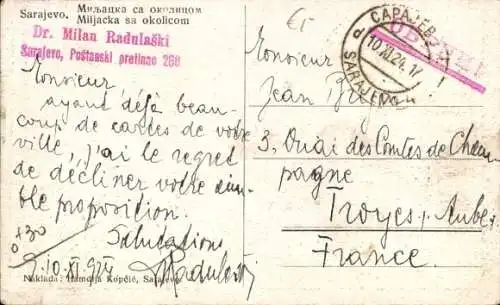 Sarajevo. Миљацка са околином
Miljacka sa okolicom
Dr. Milan Radulaški
Sarajevo, Poštanski pretinac 268
Monsieur,
ayant déjà beau-
coup de cartes de votre
ville, j'ai le regret
de décliner votre aima-
ble proposition.
Salutations
Radulaški
10.XI.924
Naklada: Hamdija Kopčić, Sarajevo
САРАЈЕВО
10.XI.24.17
SARAJEVO
Monsieur
Jean
3, Quai des Comtes de Cham
pagne
Troyes, Aube,
France.